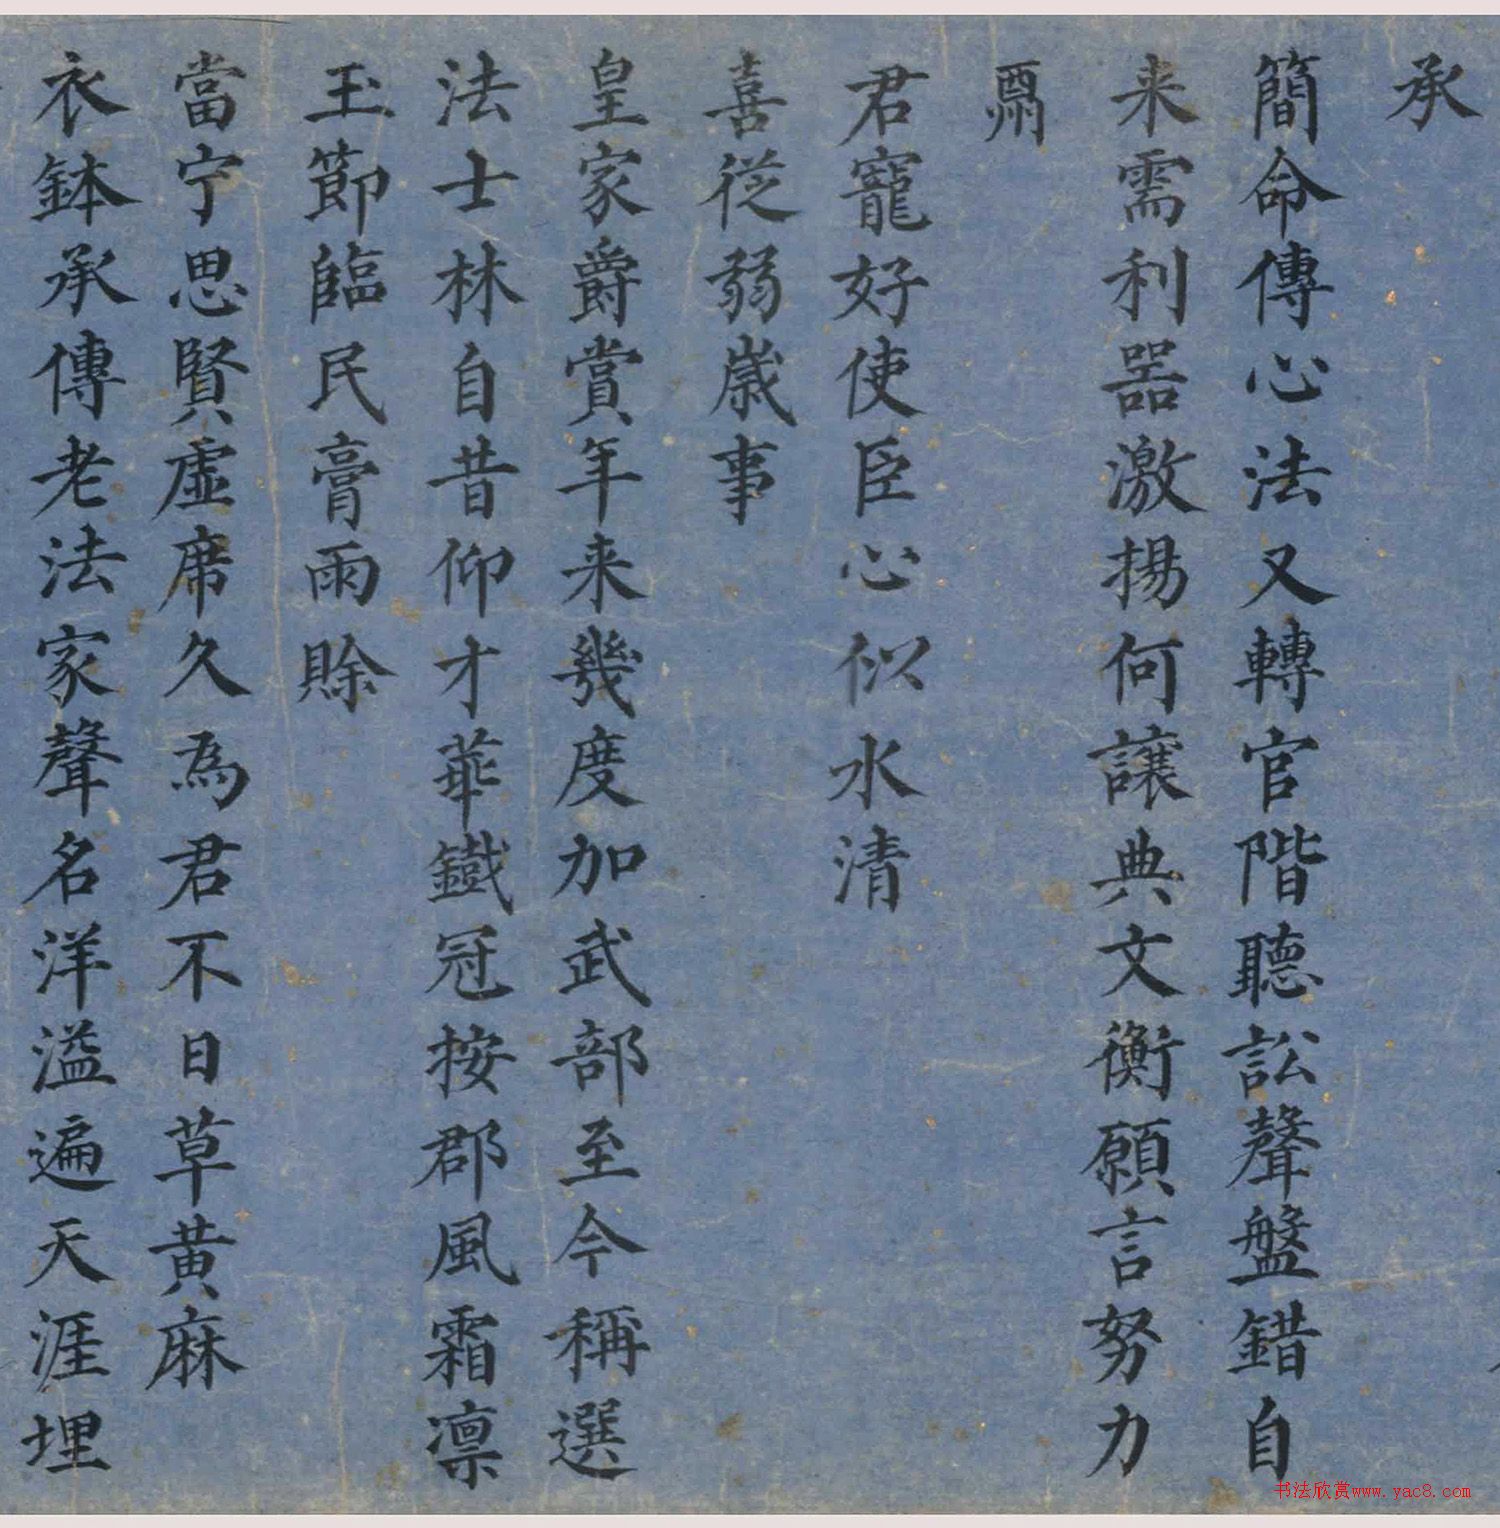 承
簡命傳心法又轉官階聽訟聲盤錯自
来需利器激揚何讓典文衡願言努力
酬
君寵好使臣心似水清
喜從弱歲事
皇家爵賞年来幾度加武部至今稱選
法士林自昔仰才華鐵冠按郡風霜凛
玉節臨民膏雨賒
當宁思賢虚席久為君不日草黄麻
衣鉢承傳老法家聲名洋溢遍天涯埋
书法欣赏www.yac8.com